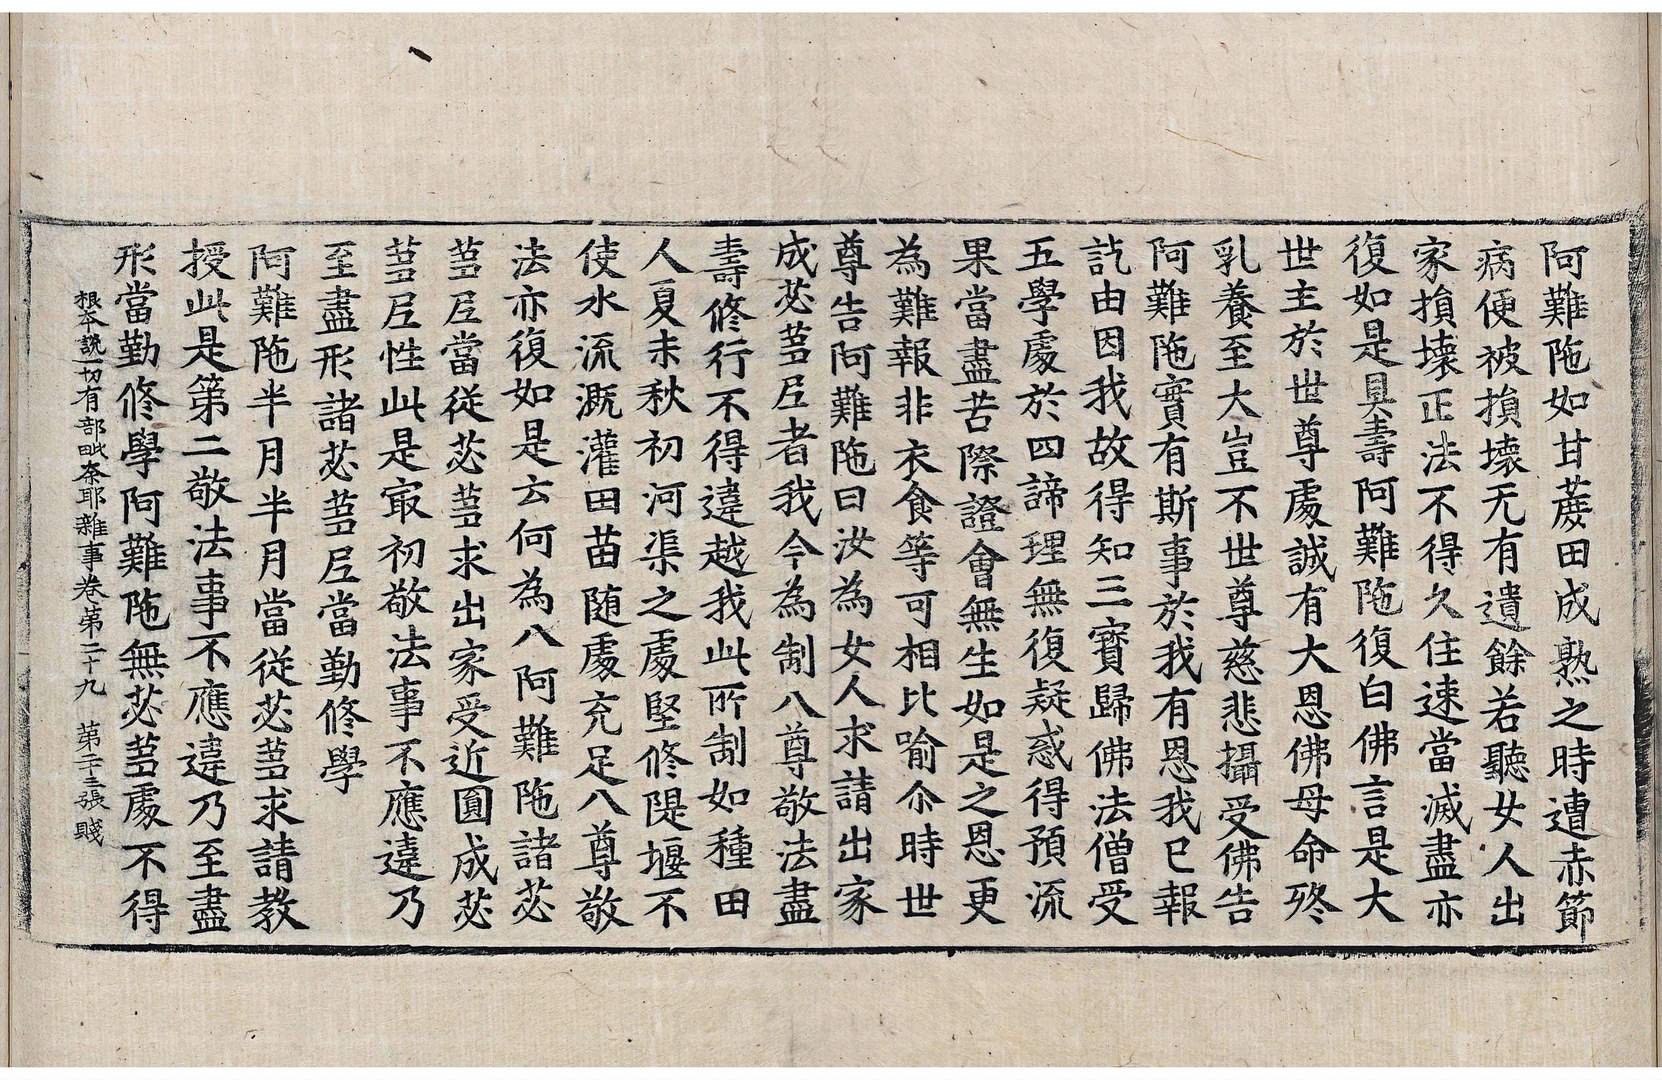 阿難陁如甘蔗田成熟之時遭赤節
病便被損壞无有遺餘若聽女人出
家損壞正法不得久住速當滅盡亦
復如是具壽阿難陁復白佛言是大
世主於世尊處誠有大恩佛母命終
乳養至大豈不世尊慈悲攝受佛告
阿難陁實有斯事於我有恩我已報
訖由因我故得知三寶歸佛法僧受
五學處於四諦理無復疑惑得預流
果當盡苦際證會無生如是之恩更
為難報非衣食等可相比喻尒時世
尊告阿難陁曰汝為女人求請出家
成苾芻尼者我今為制八尊敬法盡
壽修行不得違越我此所制如種田
人夏末秋初河渠之處堅修隄堰不
使水流溉灌田苗随處充足八尊敬
法亦復如是云何為八阿難陁諸苾
芻尼當從苾芻求出家受近圓成苾
芻尼性此是㝡初敬法事不應違乃
至盡形諸苾芻尼當勤修學
阿難陁半月半月當從苾芻求請教
授此是第二敬法事不應違乃至盡
形當勤修學阿難陁無苾芻處不得
根本說一切有部毗奈耶雜事卷第二十九　第二十三張　賤